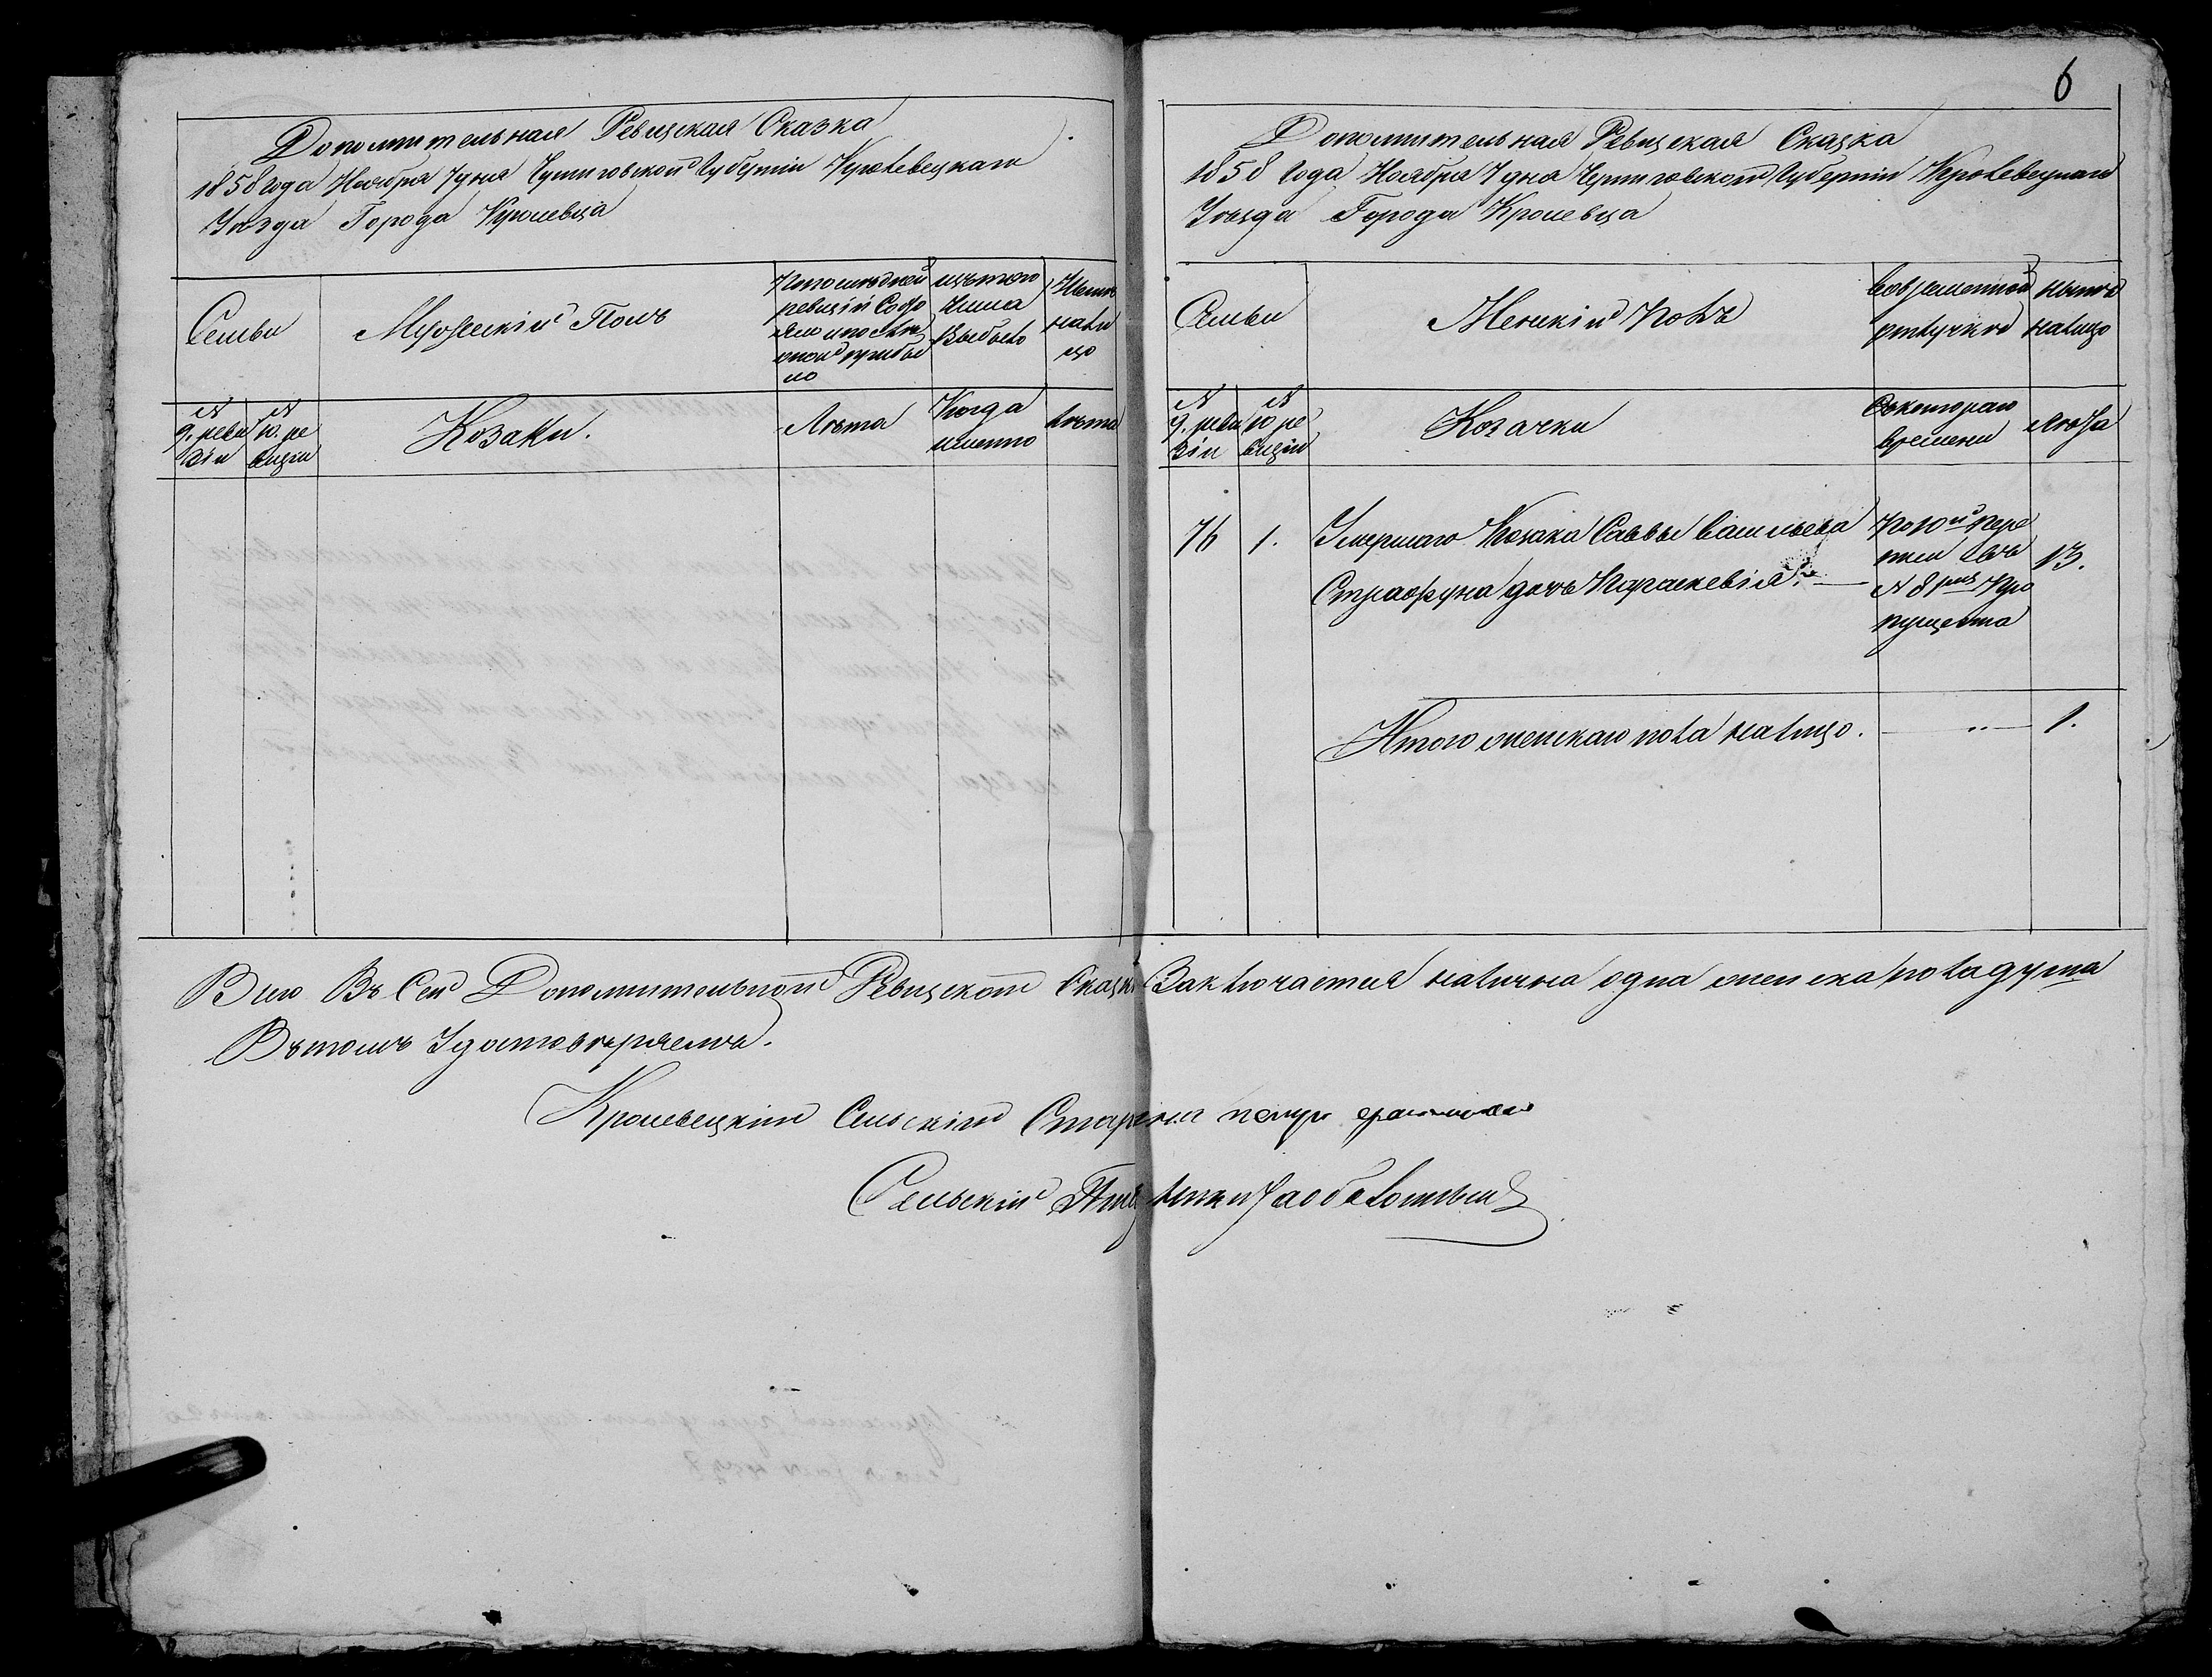 Дополнительная Ревизская Сказка
1858 года Ноября 7 дня Черниговской Губернiи Кролевецкаго
Уѣзда Города Кролевца
Семьи
Мужескiй Полъ
По послѣдней
ревизiи состо
яло и послѣ
оной прибы
ло
изъ того
числа
Выбыло
Нынѣ
нали
цо
№
9. реви
зiи
№
10. ре
визiи
Козаки.
Лѣта
Когда
именно
Лѣта
6
Дополнительная Ревизская Сказка
1858 Года Ноября 7 дня Черниговской Губернiи Кролевецкаго
Уѣзда Города Кролевца
Семьи
Женскiй Полъ
Вовременной
отлучкѣ
Нынѣ
налицо
№
9. реви
зiи
№
10 ре
визiи
Козачки
Съкотораго
времени
Лѣта
76
1.
Умершаго Козака Саввы Васильева
дочь Параскевiя. —
По 10й пере
писи
№ 8 Про
пущена
13.
Итого женскаго пола налицо. — — 1.
Всего Въ Сей Дополнительной Ревизской Сказке Заключается налична одна женска пола душа
Въ томъ Удостовѣряемъ.
Кролевецкiй Сельскiй
Сельскiй